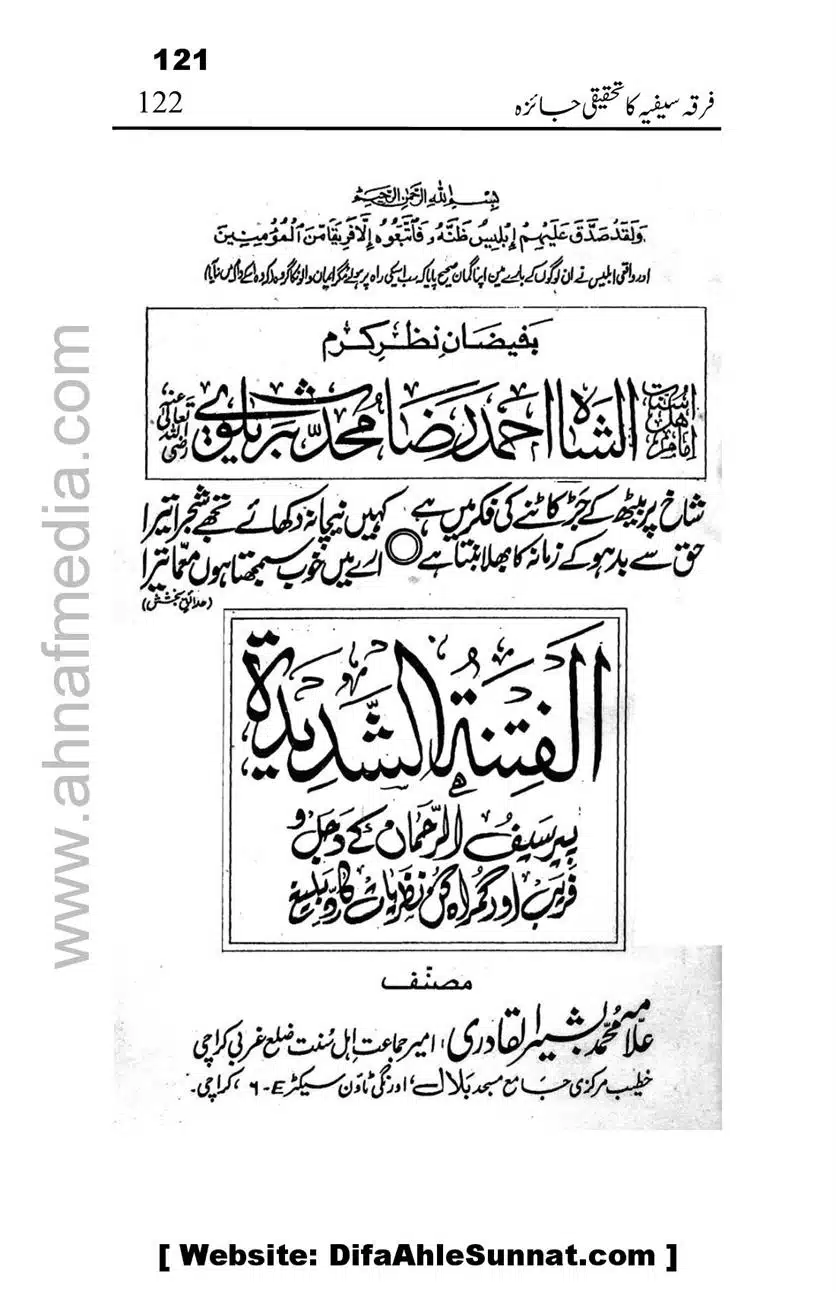 121
122 فرقہ سیفیہ کا تحقیقی جائزہ
بِسْمِ اللهِ الرَّحْمٰنِ الرَّحِيْمِ
وَلَقَدْ صَدَّقَ عَلَيْهِمْ إِبْلِيسُ ظَنَّهُ فَاتَّبَعُوهُ إِلَّا فَرِيقًا مِّنَ الْمُؤْمِنِينَ
اور واقعی ابلیس نے ان لوگوں کے بارے میں اپنا گمان صحیح پایا کہ سب اسکی راہ پر ہولئے مگر ایمان والوں کا گروہ
بفیضانِ نظرِ کرم
امام اہل سنت الشاہ احمد رضا محدث بریلوی رضی اللہ تعالیٰ عنہ
شاخ پر بیٹھ کے جڑ کاٹنے کی فکر میں ہے کہیں نیچا نہ دکھائے تجھے شجرا تیرا
حق سے بد ہو کے زمانہ کا بھلا بنتا ہے ارے میں خوب سمجھتا ہوں معما تیرا
(حدائق بخشش)
الْفِتْنَةُ الشَّدِيْدَة
پیر سیف الرحمان کے دجل و
فریب اور گمراہ کن نظریات کا ردِّ بلیغ
مصنّف
علامہ محمد بشیر القادری امیر جماعت اہل سُنت ضلع غربی کراچی
خطیب مرکزی جامع مسجد بلال، اورنگی ٹاؤن سیکٹر E-۶، کراچی۔
www.ahnafmedia.com
[ Website: DifaAhleSunnat.com ]